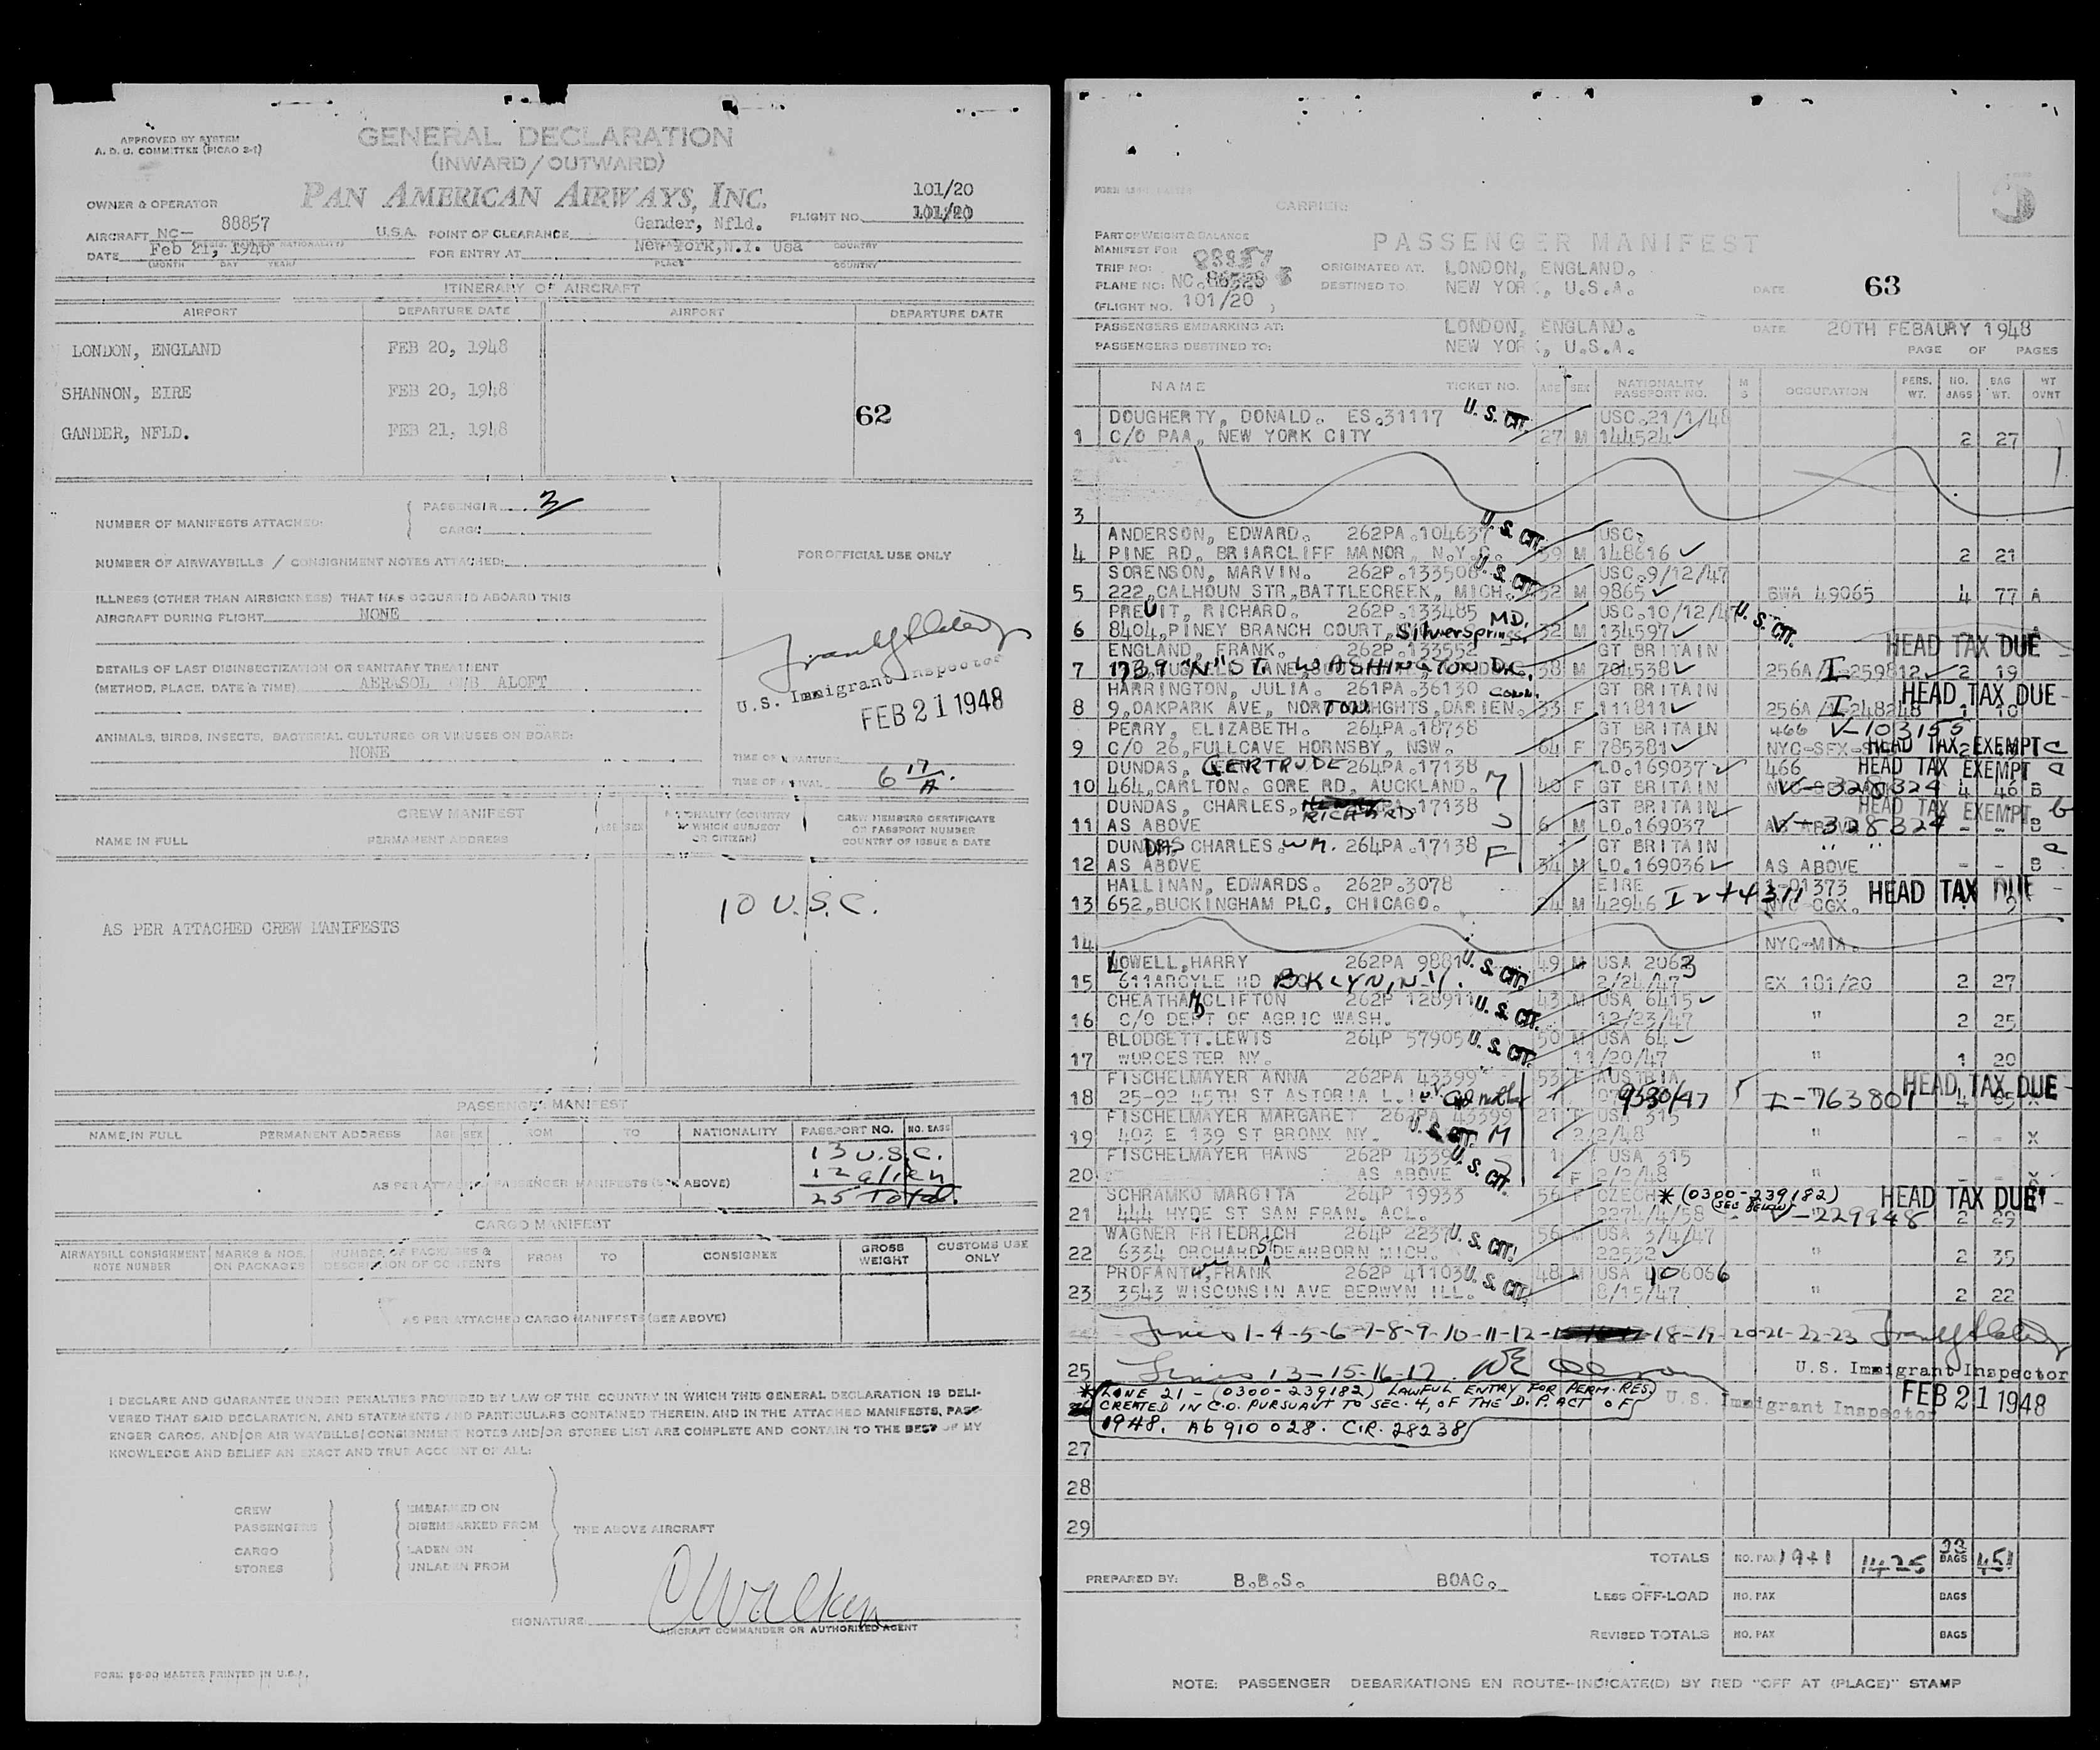 APPROVED BY SYSTEM
A. D. C. COMMITTEE (PICAO 2-1)
GENERAL DECLARATION
(INWARD/OUTWARD)
PAN AMERICAN AIRWAYS, INC.
OWNER & OPERATOR
101/20
FLIGHT NO. 101/20
AIRCRAFT NC- 88857 U.S.A. POINT OF CLEARANCE Gander, Nfld.
COUNTRY
DATE Feb 21, 1948 FOR ENTRY AT New York, N.Y. Usa
(MONTH DAY YEAR) PLACE COUNTRY
ITINERARY OF AIRCRAFT
AIRPORT DEPARTURE DATE AIRPORT DEPARTURE DATE
LONDON, ENGLAND FEB 20, 1948
SHANNON, EIRE FEB 20, 1948
62
GANDER, NFLD. FEB 21, 1948
NUMBER OF MANIFESTS ATTACHED:
PASSENGER
CARGO
NUMBER OF AIRWAYBILLS / CONSIGNMENT NOTES ATTACHED:
FOR OFFICIAL USE ONLY
ILLNESS (OTHER THAN AIRSICKNESS) THAT HAS OCCURRED ABOARD THIS
AIRCRAFT DURING FLIGHT NONE
DETAILS OF LAST DISINSECTIZATION OR SANITARY TREATMENT
(METHOD, PLACE, DATE & TIME) AERASOL ALOFT
U.S. Immigrant Inspector
FEB 21 1948
ANIMALS, BIRDS, INSECTS, BACTERIAL CULTURES OR VIRUSES ON BOARD:
NONE
TIME OF DEPARTURE
TIME OF ARRIVAL 6 17 A.
CREW MANIFEST
NAME IN FULL PERMANENT ADDRESS AGE SEX NATIONALITY (COUNTRY
WHICH SUBJECT
OR CITIZEN)
CREW MEMBERS CERTIFICATE
OR PASSPORT NUMBER
COUNTRY OF ISSUE & DATE
10 U.S.C.
AS PER ATTACHED CREW MANIFESTS
PASSENGER MANIFEST
NAME IN FULL PERMANENT ADDRESS AGE SEX FROM TO NATIONALITY PASSPORT NO. NO. BAGS
13 U.S.C.
12 alien
AS PER ATTACHED PASSENGER MANIFESTS (SEE ABOVE)
25 Total.
CARGO MANIFEST
AIRWAYBILL CONSIGNMENT
NOTE NUMBER
MARKS & NOS.
ON PACKAGES
NUMBER OF PACKAGES &
DESCRIPTION OF CONTENTS
FROM TO CONSIGNEE
GROSS
WEIGHT
CUSTOMS USE
ONLY
AS PER ATTACHED CARGO MANIFESTS (SEE ABOVE)
I DECLARE AND GUARANTEE UNDER PENALTIES PROVIDED BY LAW OF THE COUNTRY IN WHICH THIS GENERAL DECLARATION IS DELI-
VERED THAT SAID DECLARATION, AND STATEMENTS AND PARTICULARS CONTAINED THEREIN, AND IN THE ATTACHED MANIFESTS, PASS-
ENGER CARGO, AND/OR AIR WAYBILLS/CONSIGNMENT NOTES AND/OR STORES LIST ARE COMPLETE AND CONTAIN TO THE BEST OF MY
KNOWLEDGE AND BELIEF AN EXACT AND TRUE ACCOUNT OF ALL:
CREW EMBARKED ON
PASSENGERS DISEMBARKED FROM THE ABOVE AIRCRAFT
CARGO LADEN ON
STORES UNLADEN FROM
SIGNATURE CWalker
AIRCRAFT COMMANDER OR AUTHORIZED AGENT
CARRIER:
PART OF WEIGHT & BALANCE
MANIFEST FOR
PASSENGER MANIFEST
TRIP NO: 88857 ORIGINATED AT. LONDON, ENGLAND.
PLANE NO: NC. DESTINED TO. NEW YORK, U.S.A. DATE 63
(FLIGHT NO. 101/20 )
PASSENGERS EMBARKING AT: LONDON, ENGLAND. DATE 20TH FEBAURY 1948
PASSENGERS DESTINED TO: NEW YORK, U.S.A. PAGE OF PAGES
NAME TICKET NO. AGE SEX NATIONALITY PASSPORT NO. M S OCCUPATION PERS. WT. NO. BAGS BAG WT. WT OVNT
DOUGHERTY, DONALD. ES.31117 U.S. CIT. USC.21/1/48
1 C/O PAA, NEW YORK CITY 27 M 144524 2 27
2
3
ANDERSON, EDWARD. 262PA.104637 U.S. CIT. USC.
4 PINE RD, BRIARCLIFF MANOR, N.Y.C. 59 M 148616 2 21
SORENSON, MARVIN. 262P.133508 U.S. CIT. USC.9/12/47
5 222,CALHOUN STR,BATTLECREEK, MICH. 32 M 9865 BWA 49065 4 77 A
PREUIT, RICHARD. 262P.133485 MD. USC.10/12/47 U.S. CIT.
6 8404,PINEY BRANCH COURT, Silversprings 32 M 134597
ENGLAND, FRANK. 262P.133552 GT BRITAIN HEAD TAX DUE
7 1339 "N" ST. WASHINGTON D.C. 38 M 704538 256A/I-259812 2 19
HARRINGTON, JULIA. 261PA.36130 CONN. GT BRITAIN HEAD TAX DUE
8 9,OAKPARK AVE, NORTON HGHTS,DARIEN. 33 F 111811 256A/I-248248 1 10
PERRY, ELIZABETH. 264PA.18738 GT BRITAIN 466 V-103155
9 C/O 26,FULLCAVE HORNSBY, NSW. 64 F 785381 NYC-SFX- HEAD TAX EXEMPT
DUNDAS, GERTRUDE 264PA.17138 LO.169037 466 HEAD TAX EXEMPT
10 464,CARLTON. GORE RD, AUCKLAND. M 40 F GT BRITAIN V-328324 4 46 B
DUNDAS, CHARLES, RICHARD 17138 GT BRITAIN HEAD TAX EXEMPT b
11 AS ABOVE S 6 M LO.169037 V-328324 - - B
DUNDAS CHARLES. WM. 264PA.17138 F GT BRITAIN " "
12 AS ABOVE 34 M LO.169036 AS ABOVE - - B
HALLINAN, EDWARDS. 262P.3078 EIRE 01373
13 652,BUCKINGHAM PLC, CHICAGO. 24 M 42946 NYC-CGX. HEAD TAX DUE
14 NYC-MIA.
LOWELL,HARRY 262PA 9881 U.S. CIT. 49 M USA 2063
15 611ARGYLE RD BKLYN, N.Y. 2/24/47 EX 101/20 2 27
CHEATHAM CLIFTON 262P 128911 U.S. CIT. 43 M USA 6415
16 C/O DEPT OF AGRIC WASH. 12/23/47 " 2 25
BLODGETT.LEWIS 264P 57905 U.S. CIT. 50 M USA 64
17 WORCESTER NY. 11/20/47 " 1 20
FISCHELMAYER ANNA 262PA 43399 53 F AUSTRIA HEAD TAX DUE
18 25-92 45TH ST ASTORIA L.I. 9530/47 I-763801
FISCHELMAYER MARGARET 262PA 43399 21 F USA 315
19 403 E 139 ST BRONX NY. U.S. CIT. M 2/2/48 " - - X
FISCHELMAYER HANS 262P 4339 U.S. CIT. 1 USA 315
20 AS ABOVE F 2/2/48 - - X
SCHRAMKO MARGITA 264P 19933 56 F CZECH * (0300-239182) HEAD TAX DUE
(SEE BELOW)
21 444 HYDE ST SAN FRAN. ACL. 2274/4/58 V-229948 2 29
WAGNER FRIEDRICH 264P 2237 U.S. CIT. 56 M USA 3/4/47
22 6334 ORCHARD ST DEARBORN MICH. 22532 " 2 35
PROFANT,FRANK 262P 41103 U.S. CIT. 48 M USA 106066
23 3543 WISCONSIN AVE BERWYN ILL. 8/15/47 " 2 22
Lines 1-4-5-6-7-8-9-10-11-12- -18-19-20-21-22-23
25 Lines 13-15-16-17 U.S. Immigrant Inspector
FEB 21 1948
* LINE 21 - (0300-239182) LAWFUL ENTRY FOR PERM. RES.
CREATED IN C.O. PURSUANT TO SEC. 4, OF THE D.P. ACT OF
1948. A6 910 028. C.R. 28238
U.S. Immigrant Inspector
27
28
29
TOTALS NO. PAX 19+1 1425 BAGS 451
PREPARED BY: B.B.S. BOAC.
LESS OFF-LOAD NO. PAX BAGS
REVISED TOTALS NO. PAX BAGS
NOTE: PASSENGER DEBARKATIONS EN ROUTE-INDICATE(D) BY RED "OFF AT (PLACE)" STAMP